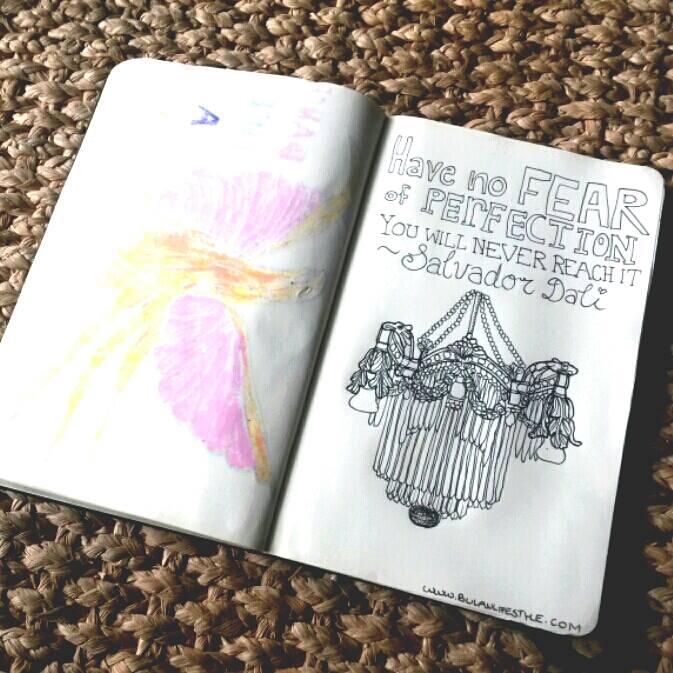 Have no FEAR
of PERFECTION
YOU WILL NEVER REACH IT
~ Salvador Dali
WWW.BULANLIFESTYLE.COM